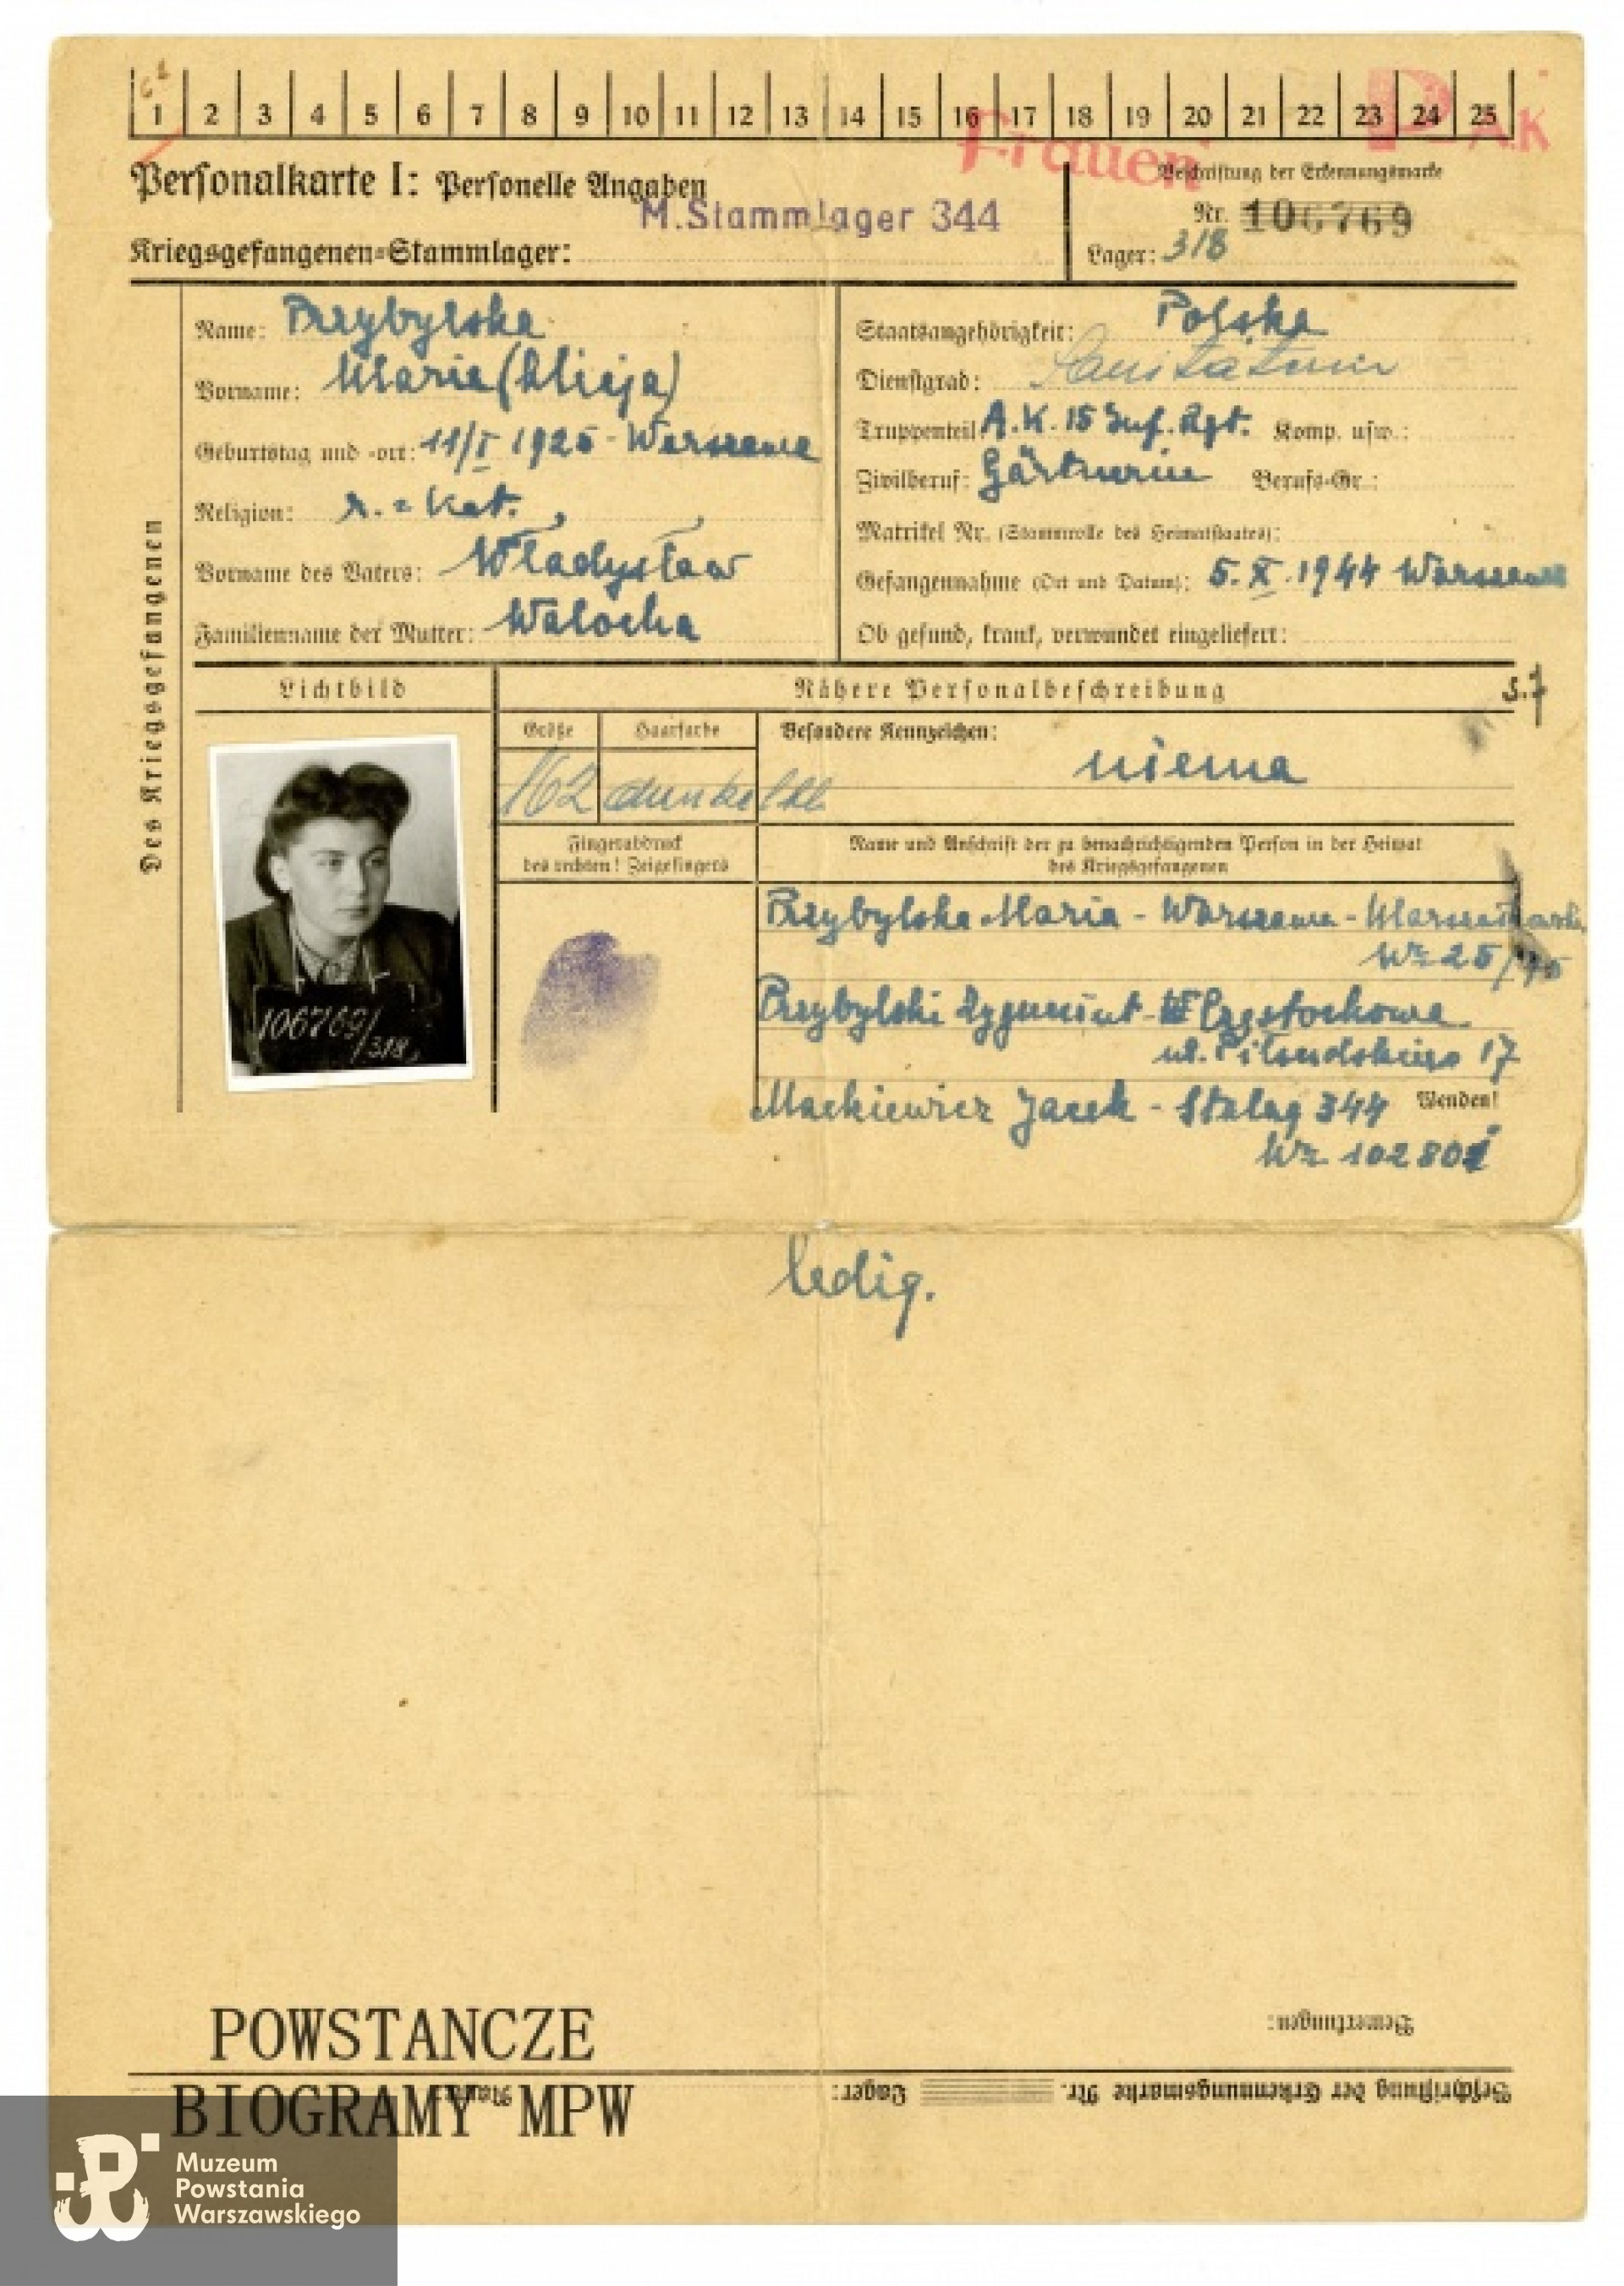 1 2 3 4 5 6 7 8 9 10 11 12 13 14 15 16 17 18 19 20 21 22 23 24 25
Frauen
P A.K
Personalkarte I: Personelle Angaben
M.Stammlager 344
Kriegsgefangenen-Stammlager:
Beschriftung der Erkennungsmarke
Nr. 106769
Lager: 318
Des Kriegsgefangenen
Name: Przybylska
Vorname: Maria (Alicja)
Geburtstag und -ort: 11/I 1925 - Warszawa
Religion: r.=kat.
Vorname des Vaters: Władysław
Familienname der Mutter: Walocha
Staatsangehörigkeit: Polska
Dienstgrad: Sanitäterin
Truppenteil A.K. 15 Inf. Rgt. Komp. usw.:
Zivilberuf: Gärtnerin Berufs-Gr.:
Matrikel Nr. (Stammrolle des Heimatstaates):
Gefangennahme (Ort und Datum): 5.X.1944 Warszawa
Ob gesund, krank, verwundet eingeliefert:
Lichtbild
Nähere Personalbeschreibung
S.7
Größe Haarfarbe Besondere Kennzeichen:
162 dunkelbl. niema
Fingerabdruck
des rechten! Zeigefingers
Name und Anschrift der zu benachrichtigenden Person in der Heimat
des Kriegsgefangenen
106769/318
Przybylska Maria - Warszawa -
Nr 25/
Przybylski Zygmunt - Częstochowa
ul. Piłsudskiego 17
Mackiewicz Jacek - Stalag 344 Wenden!
Nr 102801
ledig.
Bemerkungen:
Beschriftung der Erkennungsmarke Nr. Lager:
Name:
POWSTANCZE
BIOGRAMY MPW
Muzeum
Powstania
Warszawskiego